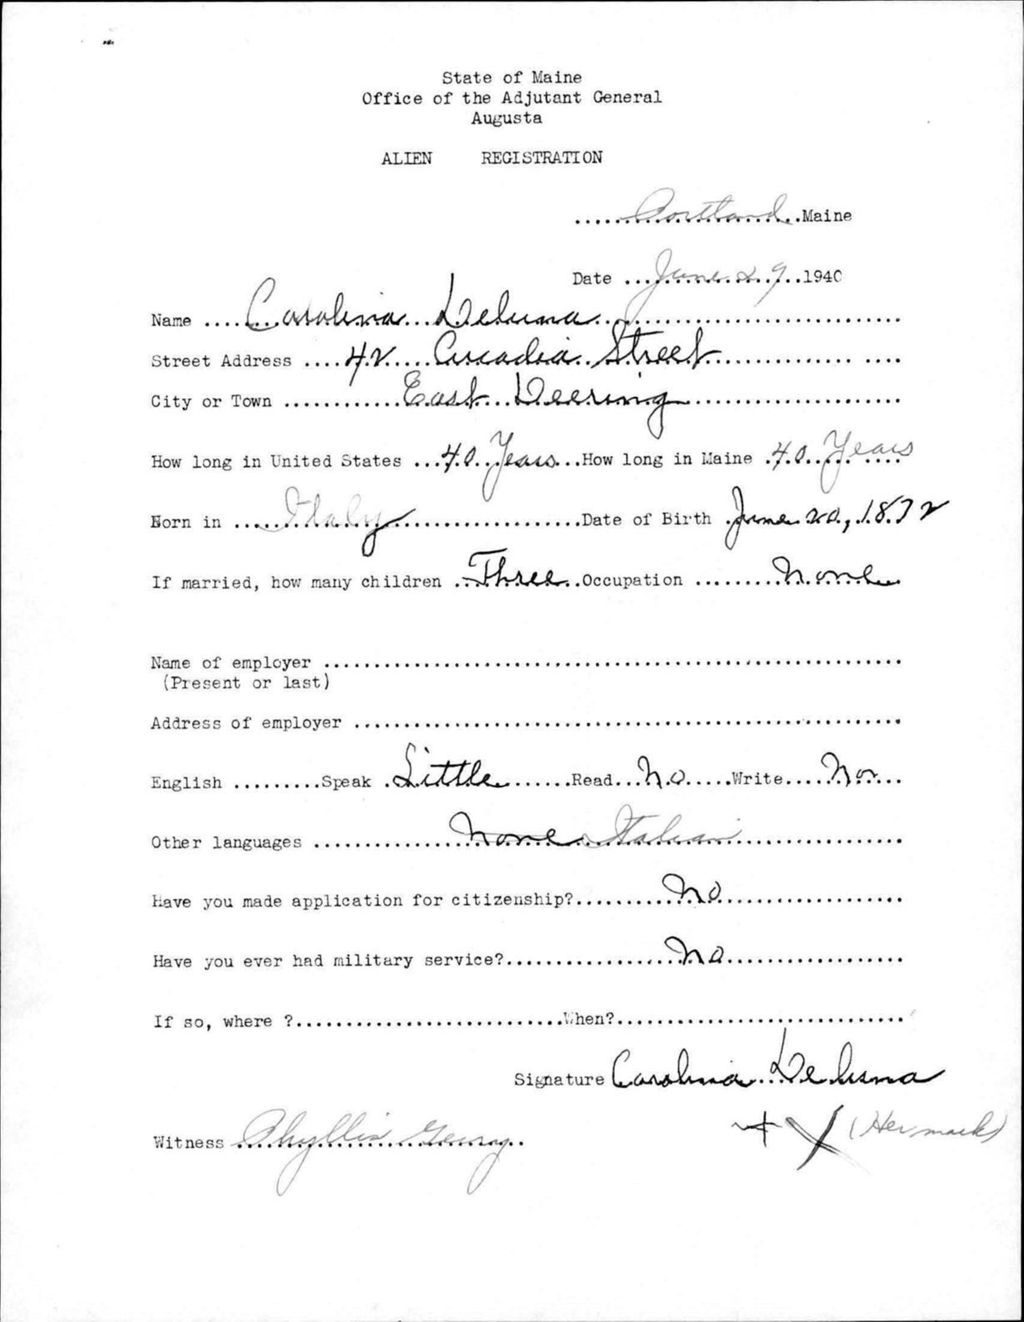 State of Maine
Office of the Adjutant General
Augusta
ALIEN REGISTRATION
.....Portland..Maine
Date ...June 29...1940
Name ....Carolina Deluma..........
Street Address ....42 Arcadia Street..........
City or Town ............East Deering..........
How long in United States ...40 Years...How long in Maine .40 Years....
Born in ....Italy..........Date of Birth .June 20, 1872
If married, how many children ..Three..Occupation ........None
Name of employer ..........
(Present or last)
Address of employer ..........
English .........Speak .Little......Read...No.....Write....No...
Other languages ............None Italian..........
Have you made application for citizenship?..........No..........
Have you ever had military service?..........No..........
If so, where ?..........When?..........
Signature Carolina Deluma
+ X (Her mark)
Witness Phyllis ..